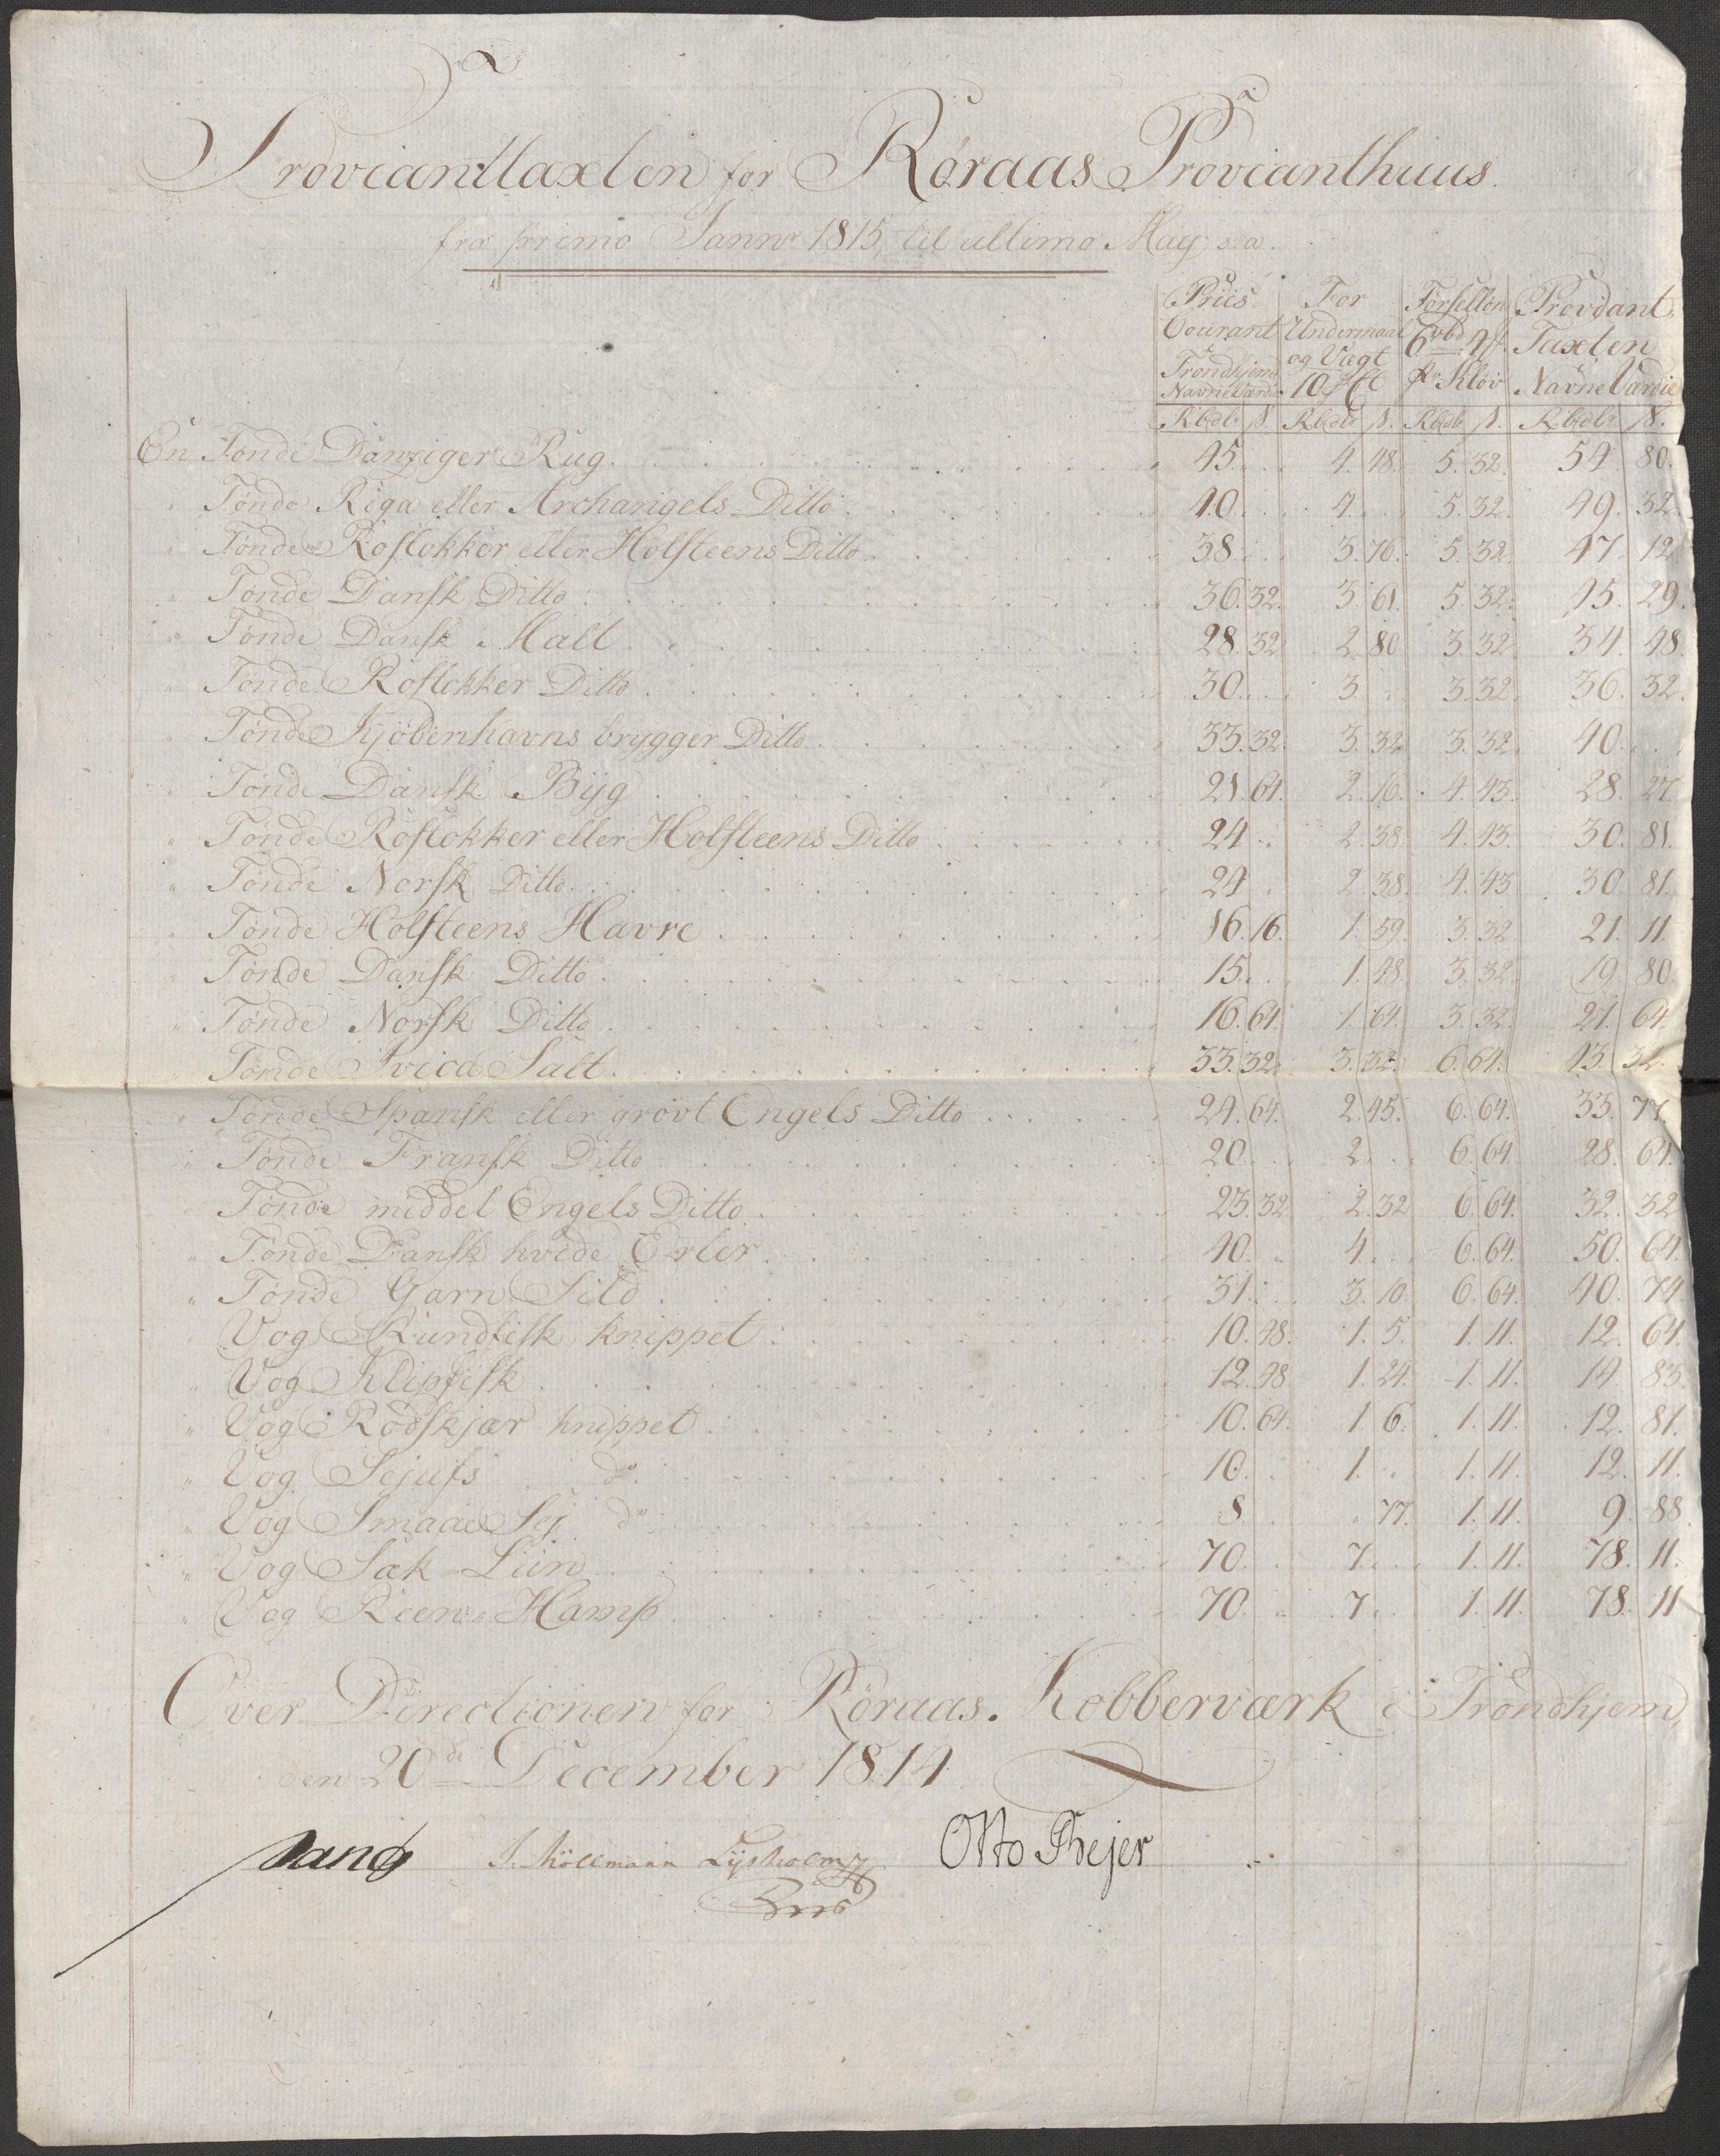 Provianttaxten for Røraas Provianthuus.
fra primo Jannr 1815, til ultimo May s: a.
Priis Courant Trondhjem Navne Værdie | For Undermaal og Vægt 10 p Ct | Førsellön 6 rbd 4 ß pr Kløv | Proviant Taxten Navne Værdie
Rbdlr ß. | Rbdlr ß. | Rbdlr ß. | Rbdlr ß.
En Tønde Danziger Rug. 45. 4. 48. 5. 32. 54. 80.
" Tønde Riga eller Archangels Ditto. 40. 4. 5. 32. 49. 32.
" Tønde Rostokker eller Holsteens Ditto. 38. 3. 76. 5. 32. 47. 12
" Tønde Dansk Ditto. 36. 32. 3. 61. 5. 32. 45. 29.
" Tønde Dansk Malt. 28. 32. 2. 80. 3. 32. 34. 48.
" Tønde Rostokker Ditto. 30. 3. 3. 32. 36. 32.
" Tønde Kjöbenhavns brygger Ditto. 33. 32. 3. 32. 3. 32. 40.
" Tønde Dansk Byg. 21. 64. 2. 16. 4. 43. 28. 27.
" Tønde Rostokker eller Holsteens Ditto. 24. 2. 38. 4. 43. 30. 81.
" Tønde Norsk Ditto. 24. 2. 38. 4. 43. 30. 81.
" Tønde Holsteens Havre. 16. 16. 1. 59. 3. 32. 21. 11.
" Tønde Dansk Ditto. 15. 1. 48. 3. 32. 19. 80.
" Tønde Norsk Ditto. 16. 64. 1. 64. 3. 32. 21. 64.
" Tønde Ivica Salt. 33. 32. 3. 32. 6. 64. 43. 32.
" Tønde Spansk eller grovt Engels Ditto. 24. 64. 2. 45. 6. 64. 33. 77.
" Tønde Fransk Ditto. 20. 2. 6. 64. 28. 64.
" Tønde middel Engels Ditto. 23. 32. 2. 32. 6. 64. 32. 32
" Tønde Dansk hvide Erter. 40. 4. 6. 64. 50. 64.
" Tønde Garn Sild. 31. 3. 10. 6. 64. 40. 74
" Vog Rundfisk knippet. 10. 48. 1. 5. 1. 11. 12. 64.
" Vog Klipfisk. 12. 48. 1. 24. 1. 11. 14. 83.
" Vog Rødskjær knippet. 10. 64. 1. 6. 1. 11. 12. 81.
" Vog Sejufs do. 10. 1. 1. 11. 12. 11.
" Vog Smaae Sej do. 8. 77. 1. 11. 9. 88
" Vog Sak Liin. 70. 7. 1. 11. 78. 11.
" Vog Reen Hamp. 70. 7. 1. 11. 78. 11
Over Directionen for Röraas. Kobberværk i Trondhjem,
den 20de December 1814.
J. Möllmann Lysholm Otto Thejer